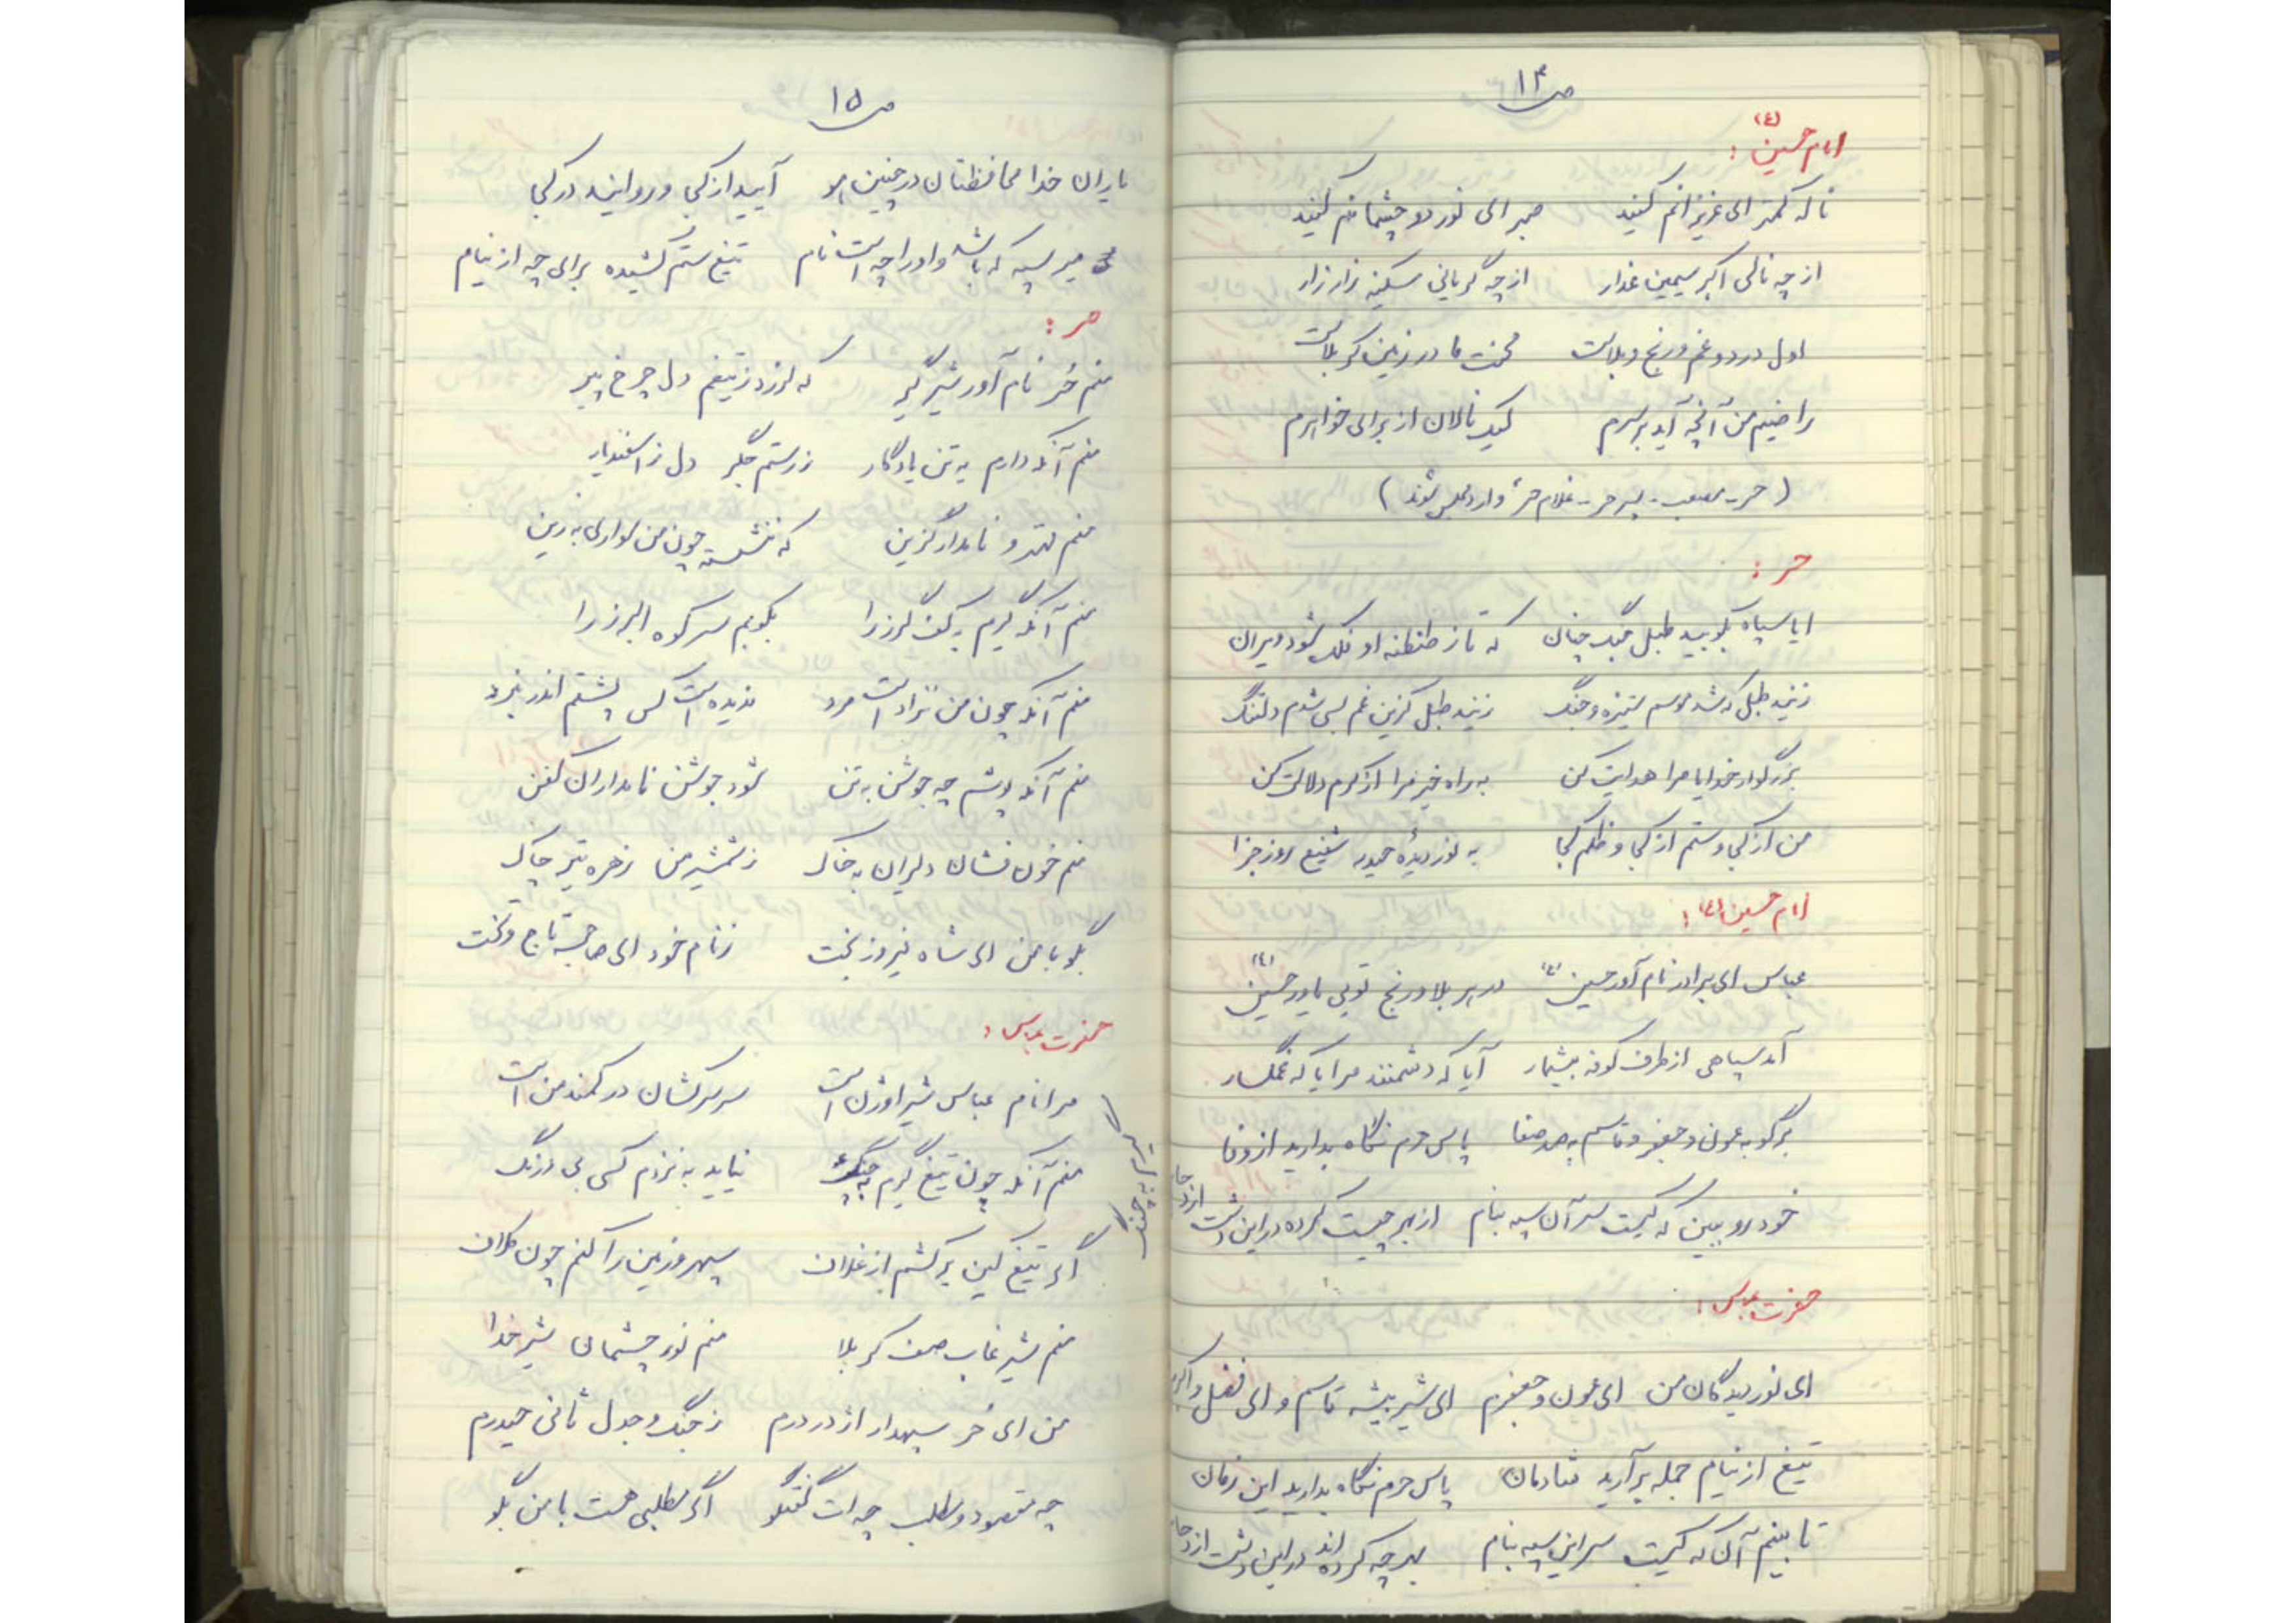 ص ۱۴
امام حسین (ع) :
ناله کمتر ای عزیزانم کنید صبر ای نور دو چشمانم کنید
از چه نالی اکبر سیمین عذار از چه گریانی سکینه زار زار
اول درد و غم و رنج و بلاست محنت ما در زمین کربلاست
راضیم من آنچه آید بر سرم لیک نالان از برای خواهرم
(حر - مصعب - پسر حر - غلام حر وارد مجلس شوند)
حر :
ایا سپاه بکوبید طبل جنگ چنان که تا ز طنطنه او فلک شود ویران
زنید طبل که شد موسم ستیزه و جنگ زنید طبل کزین غم بسی شدم دلتنگ
بزرگوار خدایا مرا هدایت کن به راه خیر مرا از کرم دلالت کن
من از کجا و ستم از کجا و ظلم کجا به نور دیدهٔ حیدر شفیع روز جزا
امام حسین (ع) :
عباس ای برادر نام آور حسین (ع) در هر بلا و رنج تویی یاور حسین (ع)
آمد سپاهی از طرف کوفه بیشمار آیا که دشمنند مرا یا که غمگسار
برگو به عون و جعفر و قاسم به صد صفا پاس حرم نگاه بدارید از وفا
خود رو ببین که کیست سر آن سپه بنام از بهر چیست کرده در این دشت ازدحام
حضرت عباس :
ای نور دیدگان من ای عون و جعفرم ای شیر بیشه قاسم و ای فضل و اکبرم
تیغ از نیام جمله برآرید شادمان پاس حرم نگاه بدارید این زمان
تا بینم آن که کیست سر این سپه بنام بهر چه کرده اند در این دشت ازدحام
ص ۱۵
یاران خدا محافظتان در چنین آیید از کجا و روانید در کجا
میر سپه که باشد و او را چه است نام تیغ ستم کشیده برای چه از نیام
حر :
منم حُر نام آور شیر گیر که لرزد ز تیغم دل چرخ پیر
منم آنکه دارم به تن یادگار ز رستم جگر دل ز اسفندیار
منم و نامدار گزین که ننشسته چون من سواری به زین
منم آنکه گیرم به کف گرز را بکوبم سر کوه البرز را
منم آنکه چون من نزاد است مرد ندیده است کس پشتم اندر نبرد
منم آنکه پوشم چه جوشن به تن شود جوشن نامداران کفن
منم خون فشان دلیران به خاک ز شمشیر من زهره تیر چاک
بگو با من ای شاه فیروز بخت ز نام خود ای صاحب تاج و تخت
حضرت عباس :
مرا نام عباس شیر اوژن است سر سرکشان در کمند من است
منم آنکه چون تیغ گیرم به چنگ نیاید به نزدم کسی بی درنگ
گیرم به چنگ
اگر تیغ کین برکشم از غلاف سپهر و زمین را کنم چون کلاف
منم شیر غاب صف کربلا منم نور چشمان شیر خدا
من ای حُر سپهدار اژدر درم ز جنگ و جدل ثانی حیدرم
چه مقصود و مطلب چه ات گفتگو اگر مطلبی هست با من بگو